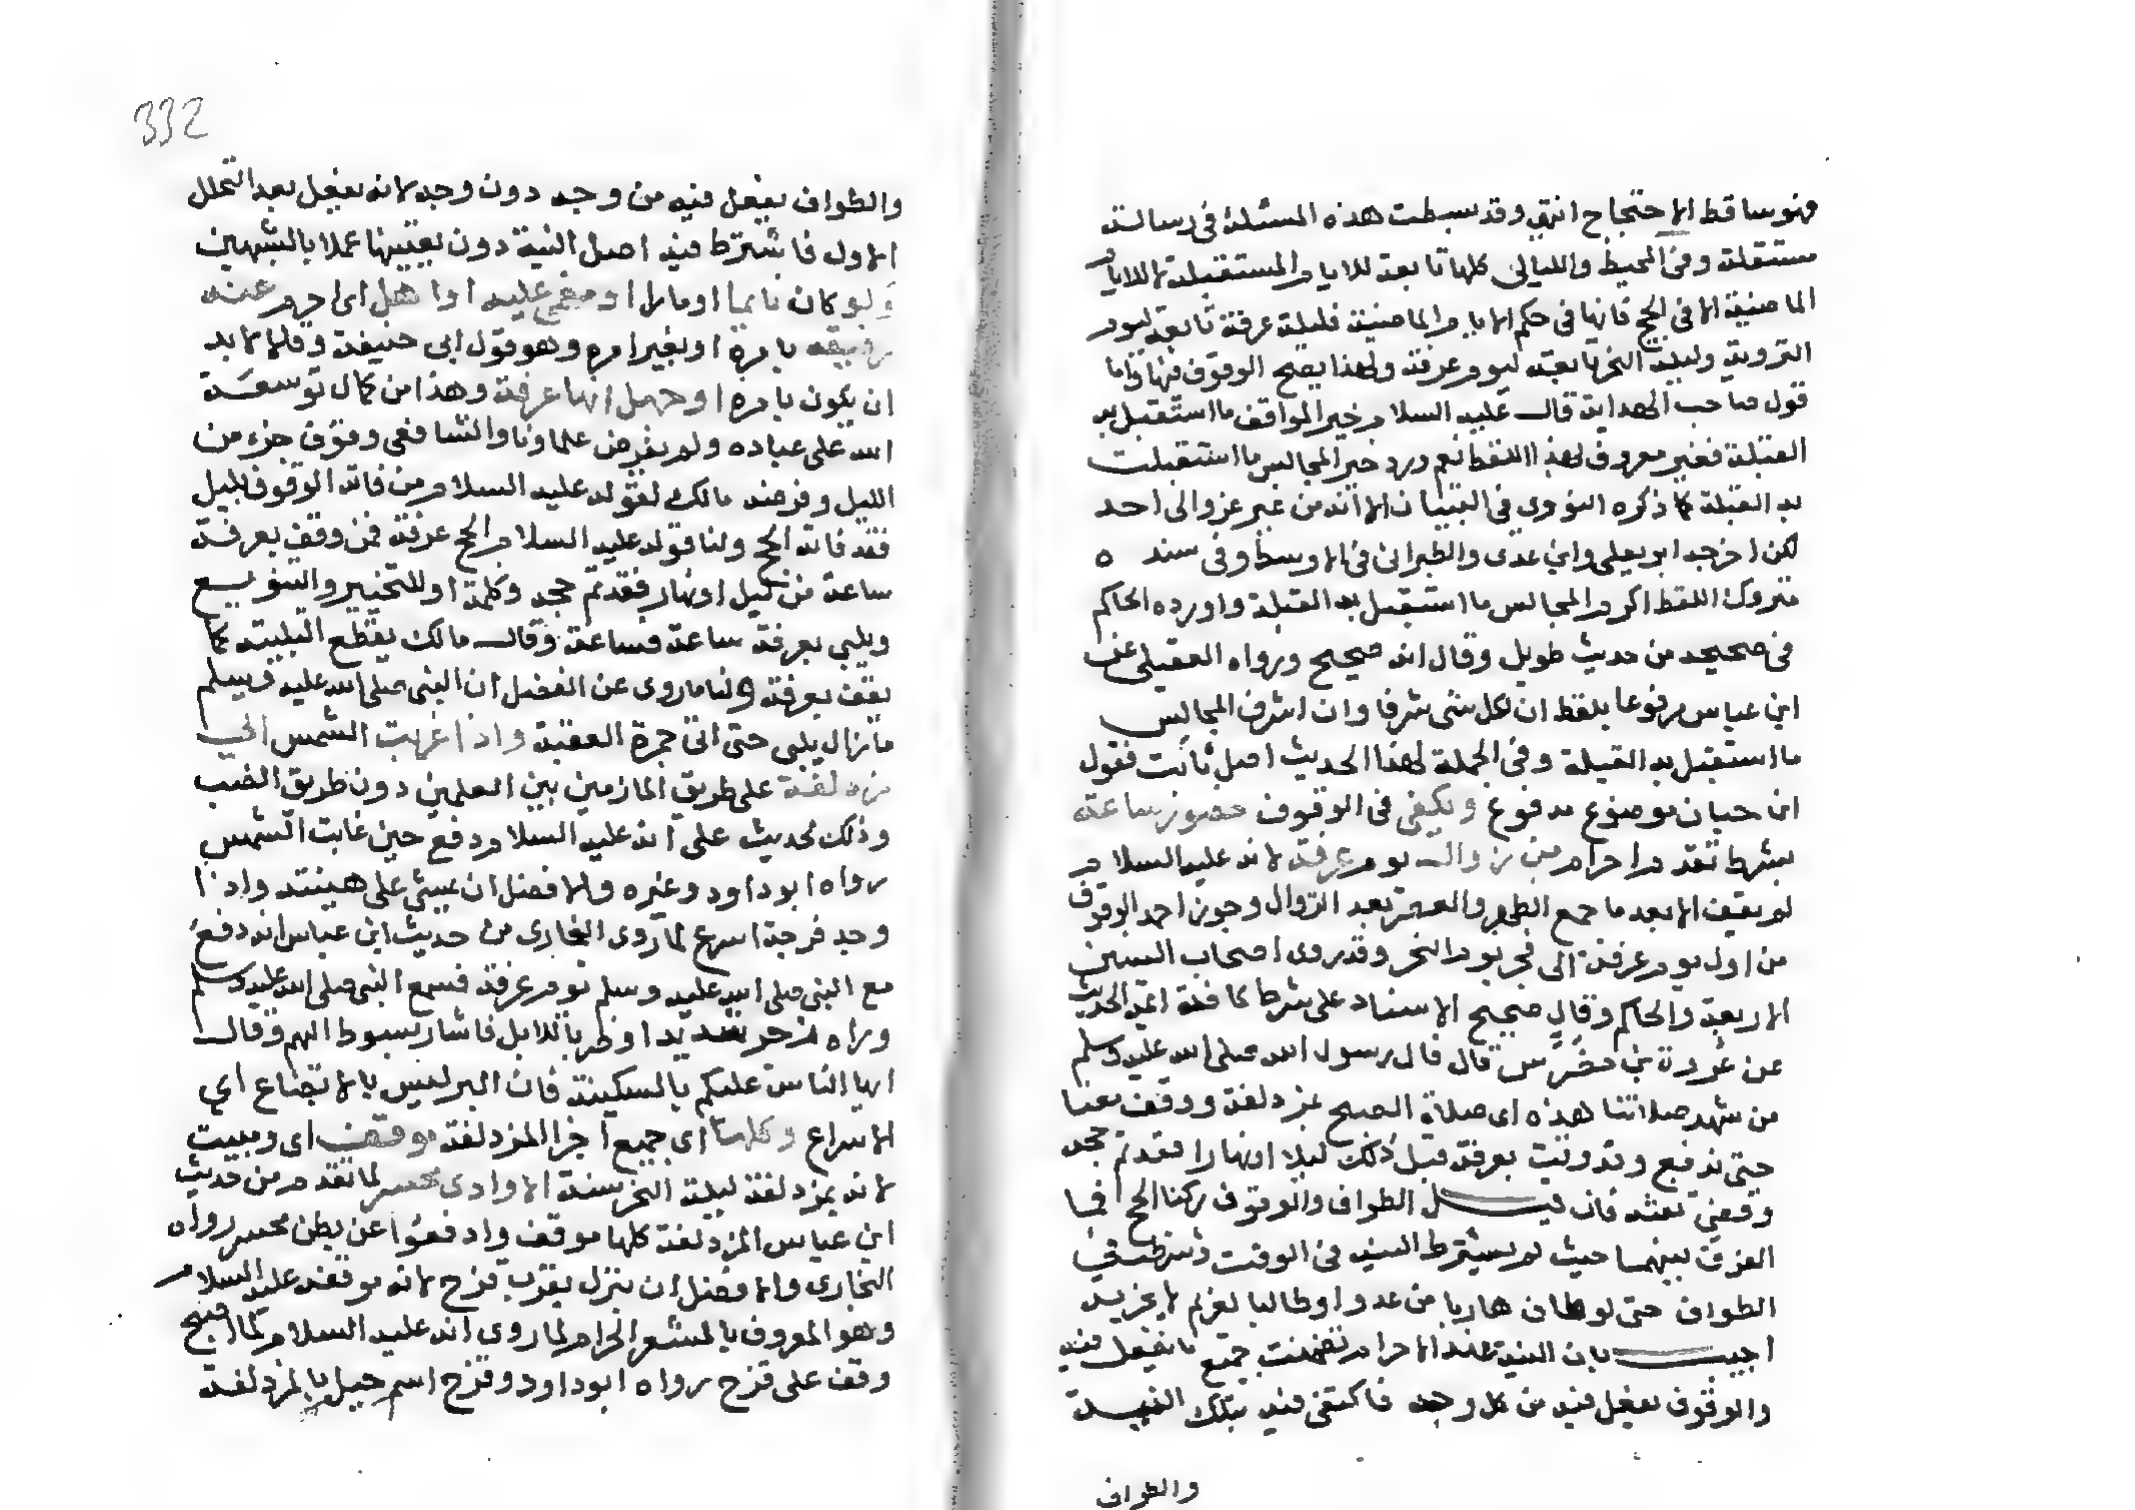 فهو ساقط الاحتجاج انتهى وقد بسطت هذه المسئلة في رسالة
مستقلة وفي المحيط والليالي كلها تابعة للايام المستقبلة لا للايام
الماضية الا في الحج فانها في حكم الايام الماضية فليلة عرفة تابعة ليوم
التروية وليلة النحر تابعة ليوم عرفة ولهذا يصح الوقوف فيها واما
قول صاحب الهداية قال عليه السلام خير المواقف ما استقبل به
القبلة فغير معروف لهذا اللفظ نعم ورد خير المجالس ما استقبلت
به القبلة كما ذكره النووي في التبيان الا انه من غير عزو الى احد
لكن اخرجه ابو يعلى وابن عدى والطبراني في الاوسط وفي سنده
متروك بلفظ اكرم المجالس ما استقبل به القبلة واورده الحاكم
في صحيحه من حديث طويل وقال انه صحيح ورواه العقيلي عن
ابن عباس مرفوعا بلفظ ان لكل شى شرفا وان اشرف المجالس
ما استقبل به القبلة وفي الجملة لهذا الحديث اصل ثابت فقول
ابن حبان موضوع مدفوع ويكفي في الوقوف حضور ساعة
بشرط تقدم احرام من زوال يوم عرفة لانه عليه السلام
لم يقف الا بعد ما جمع الظهر والعصر بعد الزوال وجوز احمد الوقوف
من اول يوم عرفة الى فجر يوم النحر وقد روى اصحاب السنن
الاربعة والحاكم وقال صحيح الاسناد على شرط كافة ائمة الحديث
عن عروة بن مضرس قال قال رسول الله صلى الله عليه وسلم
من شهد صلاتنا هذه اى صلاة الصبح بمزدلفة ووقف معنا
حتى ندفع وقد وقف بعرفة قبل ذلك ليلا او نهارا فقد تم حجه
وقضى تفثه فان قيل الطواف والوقوف ركنا الحج فما
الفرق بينهما حيث لم يشترط النية في الوقت وشرطت في
الطواف حتى لو طاف هاربا من عدو او طالبا لغريم لا يجزيه
اجيب بان النية عند الاحرام تضمنت جميع ما يفعل فيه
والوقوف يفعل فيه من كل وجه فاكتفى فيه بتلك النية
والطواف
332
والطواف يفعل فيه من وجه دون وجه لانه يفعل بعد التحلل
الاول فاشترط فيه اصل النية دون تعيينها عملا بالشبهين
ولو كان نايما او مارا او مغمى عليه او اهل اى احرم عنه
رفيقه بامره او بغير امره وهو قول ابى حنيفة وقالا لا بد
ان يكون بامره او جهل انها عرفة وهذا من كمال توسعة
الله على عباده ولم يفرض علماونا والشافعى وقوف جزء من
الليل وفرضه مالك لقوله عليه السلام من فاته الوقوف بليل
فقد فاته الحج ولنا قوله عليه السلام الحج عرفة فمن وقف بعرفة
ساعة من ليل او نهار فقد تم حجه وكلمة او للتخيير والتنويع
ويلبي بعرفة ساعة فساعة وقال مالك يقطع التلبية كما
يقف بعرفة ولنا ما روى عن الفضل ان النبى صلى الله عليه وسلم
ما زال يلبى حتى اتى جمرة العقبة واذا غربت الشمس اتى
مزدلفة على طريق المازمين بين العلمين دون طريق الضب
وذلك لحديث على انه عليه السلام دفع حين غابت الشمس
رواه ابو داود وغيره والافضل ان يمشى على هينته واذا
وجد فرجة اسرع لما روى البخارى من حديث ابن عباس انه دفع
مع النبى صلى الله عليه وسلم يوم عرفة فسمع النبى صلى الله عليه وسلم
وراه زجر شديدا وضربا للابل فاشار بسوط اليهم وقال
ايها الناس عليكم بالسكينة فان البر ليس بالايضاع اي
الاسراع وكلها اى جميع اجزا المزدلفة موقف اى ومبيت
لانه بمزدلفة ليلة النحر سنة الا وادى محسر لما تقدم من حديث
ابن عباس المزدلفة كلها موقف وادفعوا عن بطن محسر رواه
البخارى والافضل ان ينزل بقرب قزح لانه موقفه عليه السلام
وهو المعروف بالمشعر الحرام لما روى انه عليه السلام لما اصبح
وقف على قزح رواه ابو داود وقزح اسم جبل بالمزدلفة